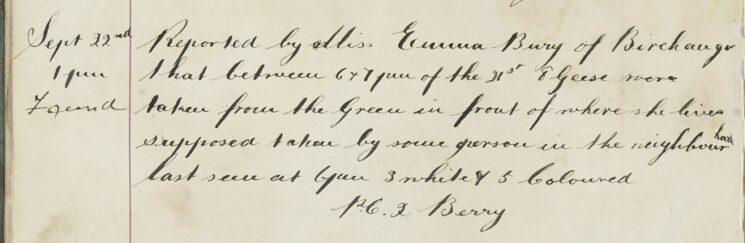 Sept 22nd Reported by Miss Emma Bury of Birchanger
1 pm that between 6 & 7 pm of the 21st 8 Geese were
Found taken from the Green in front of where she lives
supposed taken by some person in the neighbourhood
last seen at 6 pm 3 white & 5 Coloured
P.C. Berry